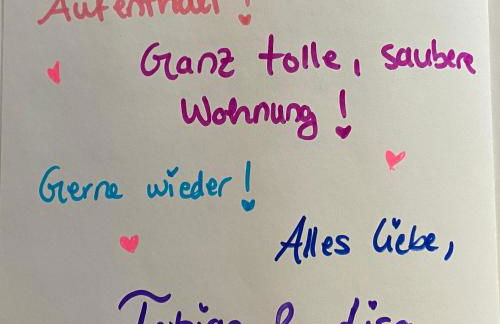 Aufenthalt!
Ganz tolle, saubere
Wohnung!
Gerne wieder!
Alles Liebe,
Tobias &